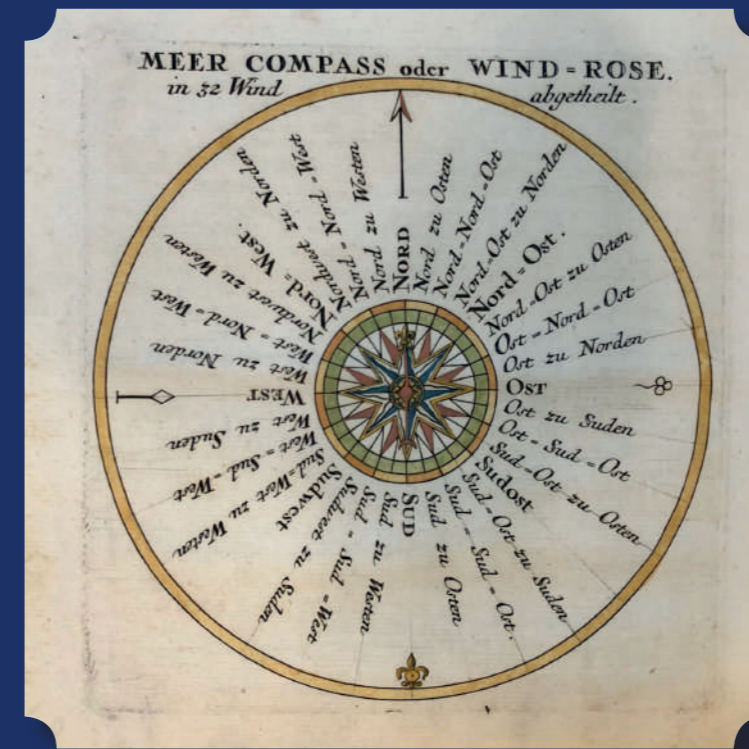 MEER COMPASS oder WIND = ROSE.
in 32 Wind abgetheilt.
NORD
Nord zu Osten
Nord = Nord = Ost
Nord = Ost zu Norden
Nord = Ost.
Nord = Ost zu Osten
Ost = Nord = Ost
Ost zu Norden
OST
Ost zu Suden
Ost = Sud = Ost
Sud = Ost zu Osten
Sudost
Sud = Ost zu Suden
Sud = Sud = Ost.
Sud zu Osten
SUD
Sud zu Westen
Sud = Sud = West
Sudwest zu Suden
Sudwest
Sud = West zu Westen
West = Sud = West
West zu Suden
WEST
West zu Norden
West = Nord = West
Nordwest zu Westen
Nord = West.
Nordwest zu Norden
Nord = Nord = West
Nord zu Westen